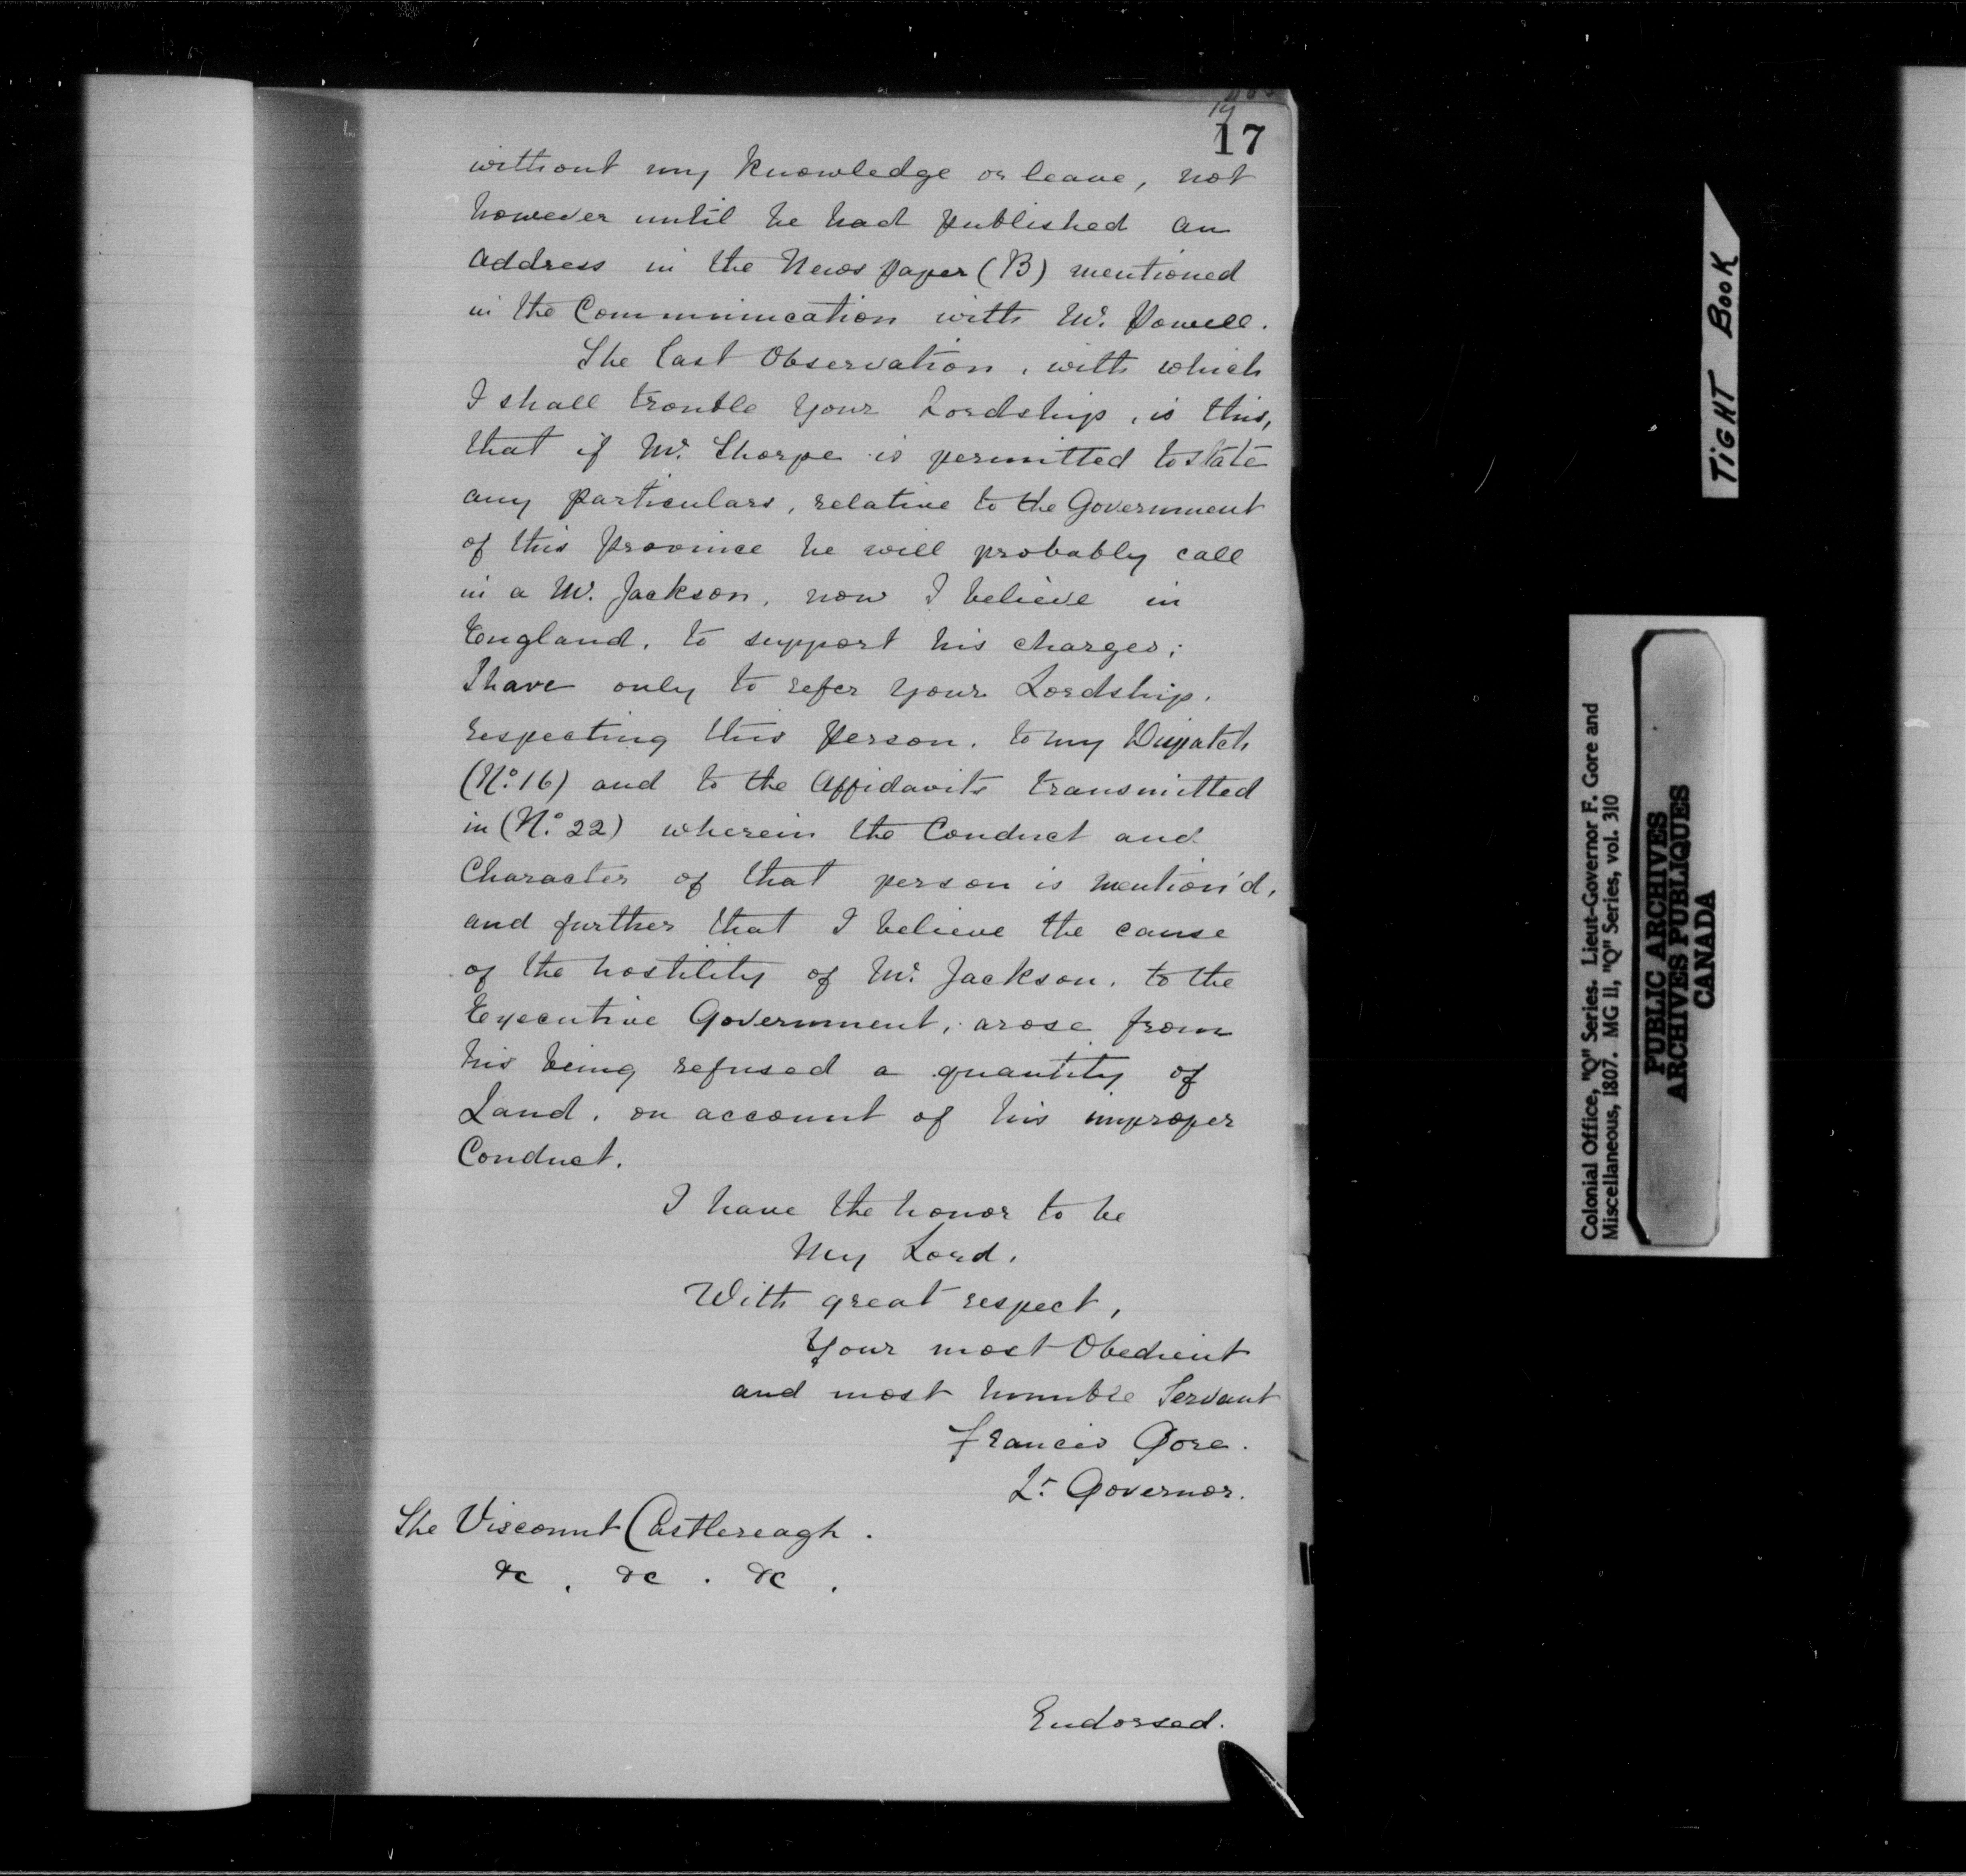 17
without my knowledge or leave, not
however until he had published an
address in the News paper (B) mentioned
in the Communication with Mr. Powell.
The last Observation, with which
I shall trouble Your Lordship, is this,
that if Mr. Thorpe is permitted to state
any particulars, relative to the Government
of this Province he will probably call
in a Mr. Jackson, now I believe in
England, to support his charges;
I have only to refer Your Lordship,
respecting this Person, to my Dispatch
(No. 16) and to the Affidavits transmitted
in (No. 22) wherein the Conduct and
Character of that person is mention'd,
and further that I believe the cause
of the hostility of Mr. Jackson, to the
Executive Government, arose from
his being refused a quantity of
Land, on account of his improper
Conduct.
I have the honor to be
My Lord,
With great respect,
Your most Obedient
and most humble Servant
Francis Gore.
Lt. Governor.
The Viscount Castlereagh.
&c. &c. &c.
Endorsed.
TIGHT BOOK
Colonial Office, "Q" Series. Lieut-Governor F. Gore and
Miscellaneous, 1807. MG 11, "Q" Series, vol. 310
PUBLIC ARCHIVES
ARCHIVES PUBLIQUES
CANADA